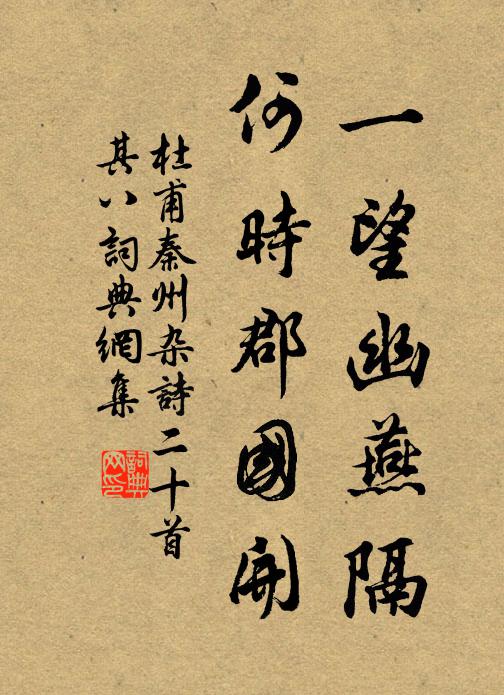 一望幽燕隔
何時郡國開
杜甫秦州杂詩二十首
其八詞典網集
詞典网印